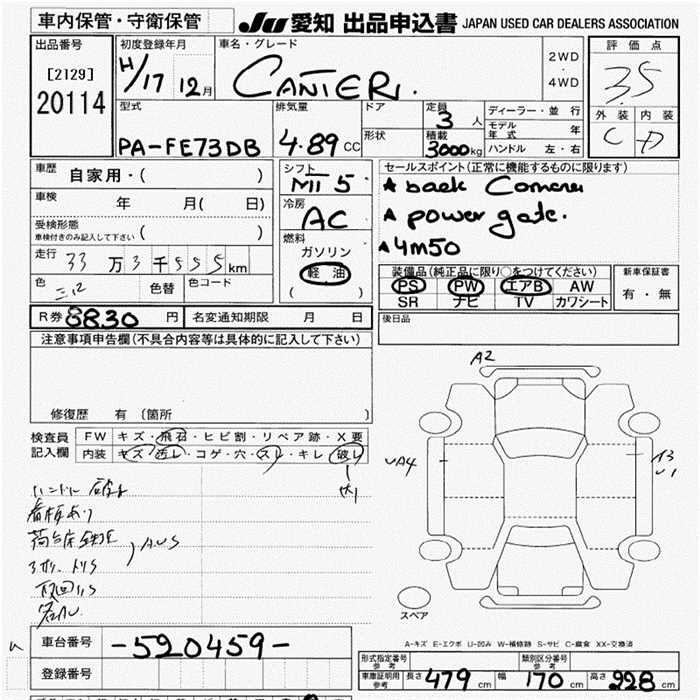 車内保管・守衛保管
JU 愛知 出品申込書 JAPAN USED CAR DEALERS ASSOCIATION
出品番号
[2129]
20114
初度登録年月
H/17 12月
車名・グレード
CANTER
2WD
・
4WD
評価点
3.5
外装 内装
C D
型式
PA-FE73DB
排気量
4.89 CC
ドア
形状
定員
3人
積載
3000kg
ディーラー・並 行
モデル年式 年
ハンドル 左・右
車歴 自家用・( )
車検 年 月( 日)
受検形態
車検付きのみ記入して下さい ( )
走行 33万3千555km
色 色替 色コード
R券 8830 円 名変通知期限 月 日
シフト
MT 5
冷房
AC
燃料
ガソリン
軽 油
( )
セールスポイント(正常に機能するものに限ります)
★ back Camera
★ power gate.
★ 4m50
装備品(純正品に限り○をつけてください)
PS PW エアB AW
SR ナビ TV カワシート
新車保証書
有・無
後日品
注意事項申告欄(不具合内容等は具体的に記入して下さい)
修復歴 有 (箇所 )
検査員記入欄
FW キズ・飛石・ヒビ割・リペア跡・X要
内装 キズ・汚レ・コゲ・穴・スレ・キレ・破レ
看板あり
A2
UA4
スペア
A-キズ E-エクボ U-凹み W-補修跡 S-サビ C-腐食 XX-交換済
車台番号 -520459-
登録番号
形式指定番号 参考
類別区分番号 参考
車庫証明用参考 長さ 479 cm 幅 170 cm 高さ 928 cm